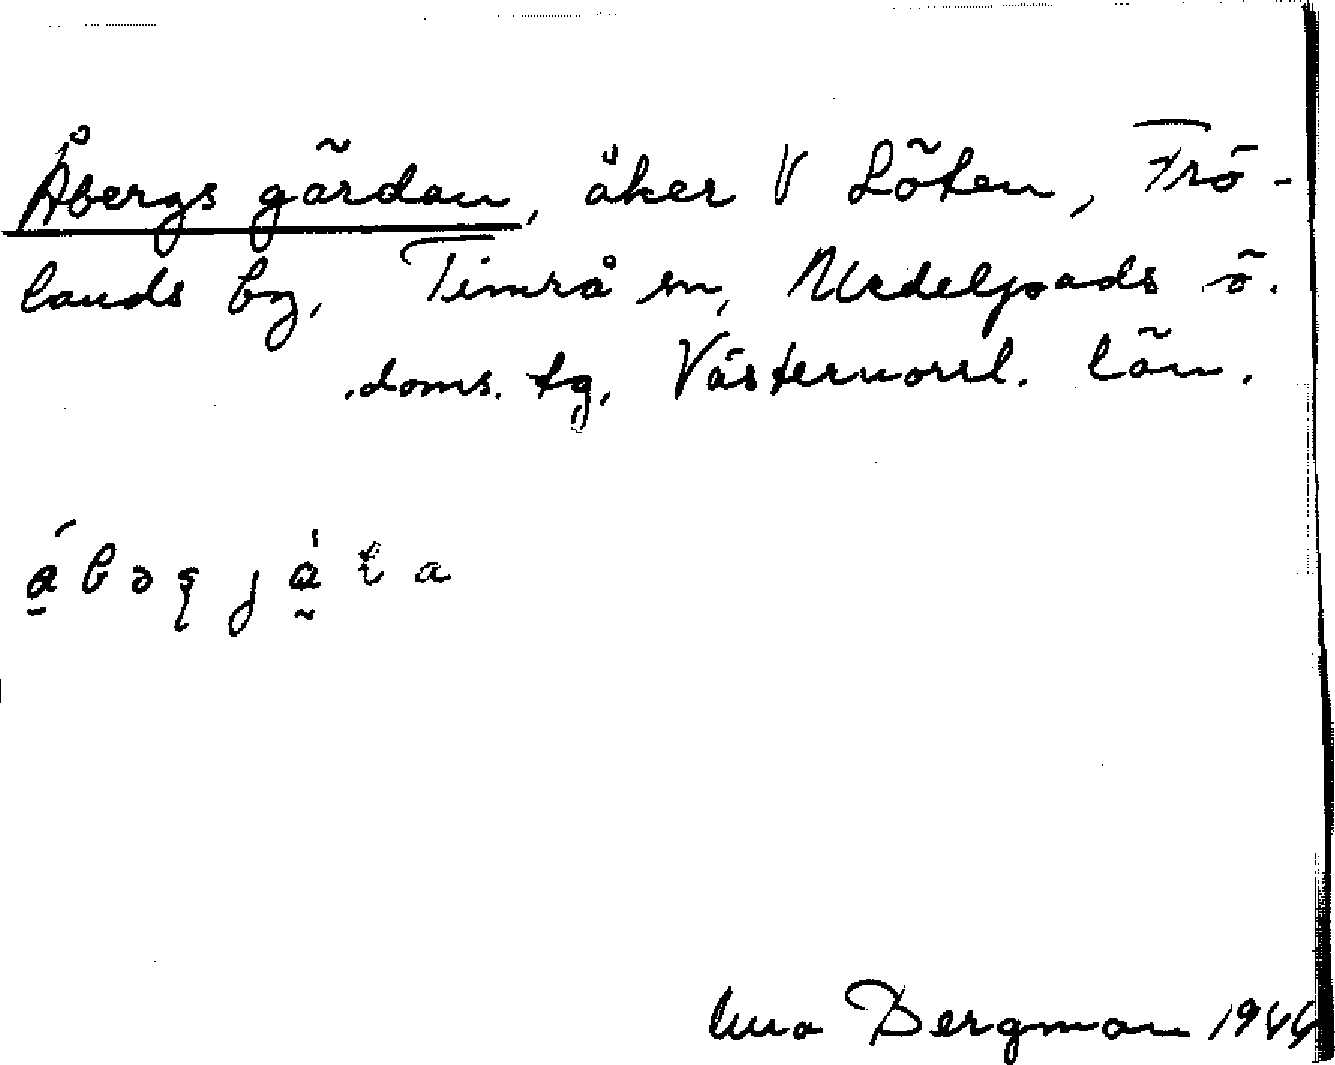 Åbergs gärdan, åker V Löten, Frö-
lands by, Timrå sn, Medelpads ö.
doms. tg, Västernorrl. län.
Bergman 1944